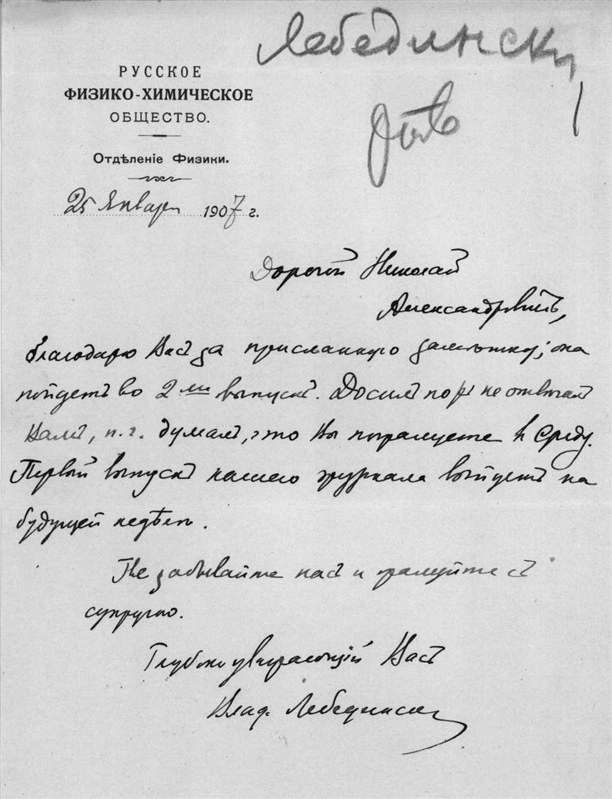 Лебединский
РУССКОЕ
ФИЗИКО-ХИМИЧЕСКОЕ
ОБЩЕСТВО.
Отдѣленіе Физики.
25 Января 1907 г.
Дорогой Николай
Александровичъ,
благодарю Васъ за присланную замѣтку; она
пойдетъ во 2-мъ выпускѣ. До сихъ поръ не отвѣчалъ
Вамъ, п.ч. думалъ, что Вы пожалуете въ Среду.
Первый выпускъ нашего журнала выйдетъ на
будущей недѣлѣ.
Не забывайте насъ и жалуйте съ
супругою.
Глубокоуважающій Васъ
Влад. Лебединскій